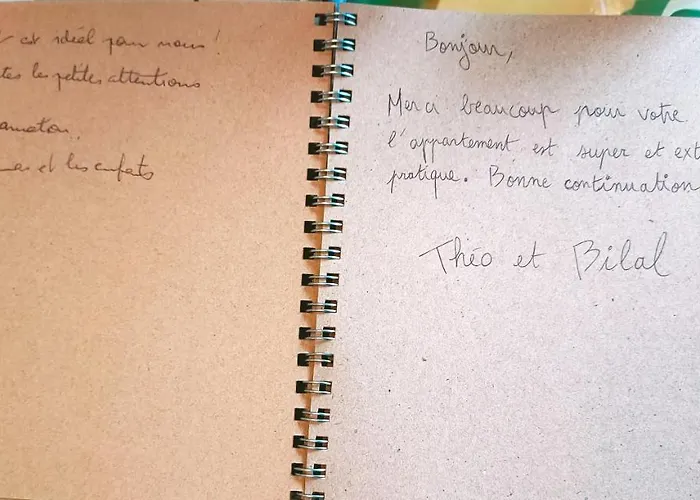 est idéal pour nous !
les petites attentions
et les enfants
Bonjour,
Merci beaucoup pour votre
l'appartement est super et ext
pratique. Bonne continuation
Théo et Bilal